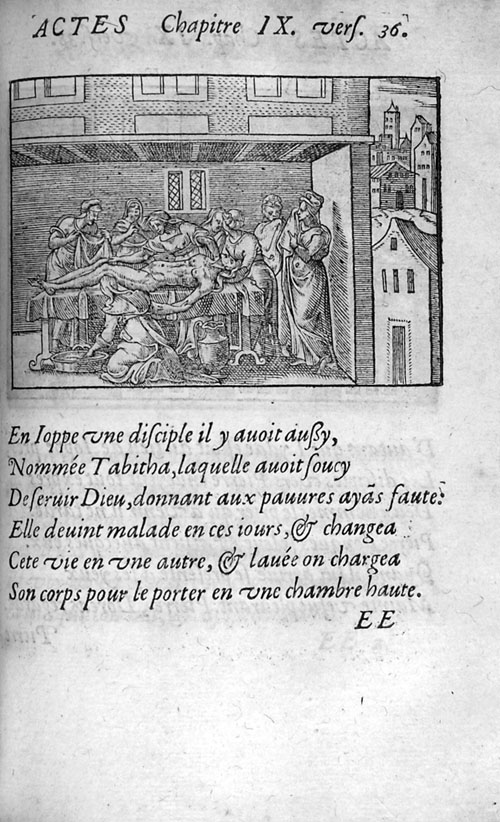 ACTES Chapitre IX. verſ. 36.
En Ioppe vne diſciple il y auoit auſſy,
Nommée Tabitha, laquelle auoit ſoucy
De ſeruir Dieu, donnant aux pauures ayãs faute:
Elle deuint malade en ces iours, & changea
Cete vie en vne autre, & lauée on chargea
Son corps pour le porter en vne chambre haute.
EE